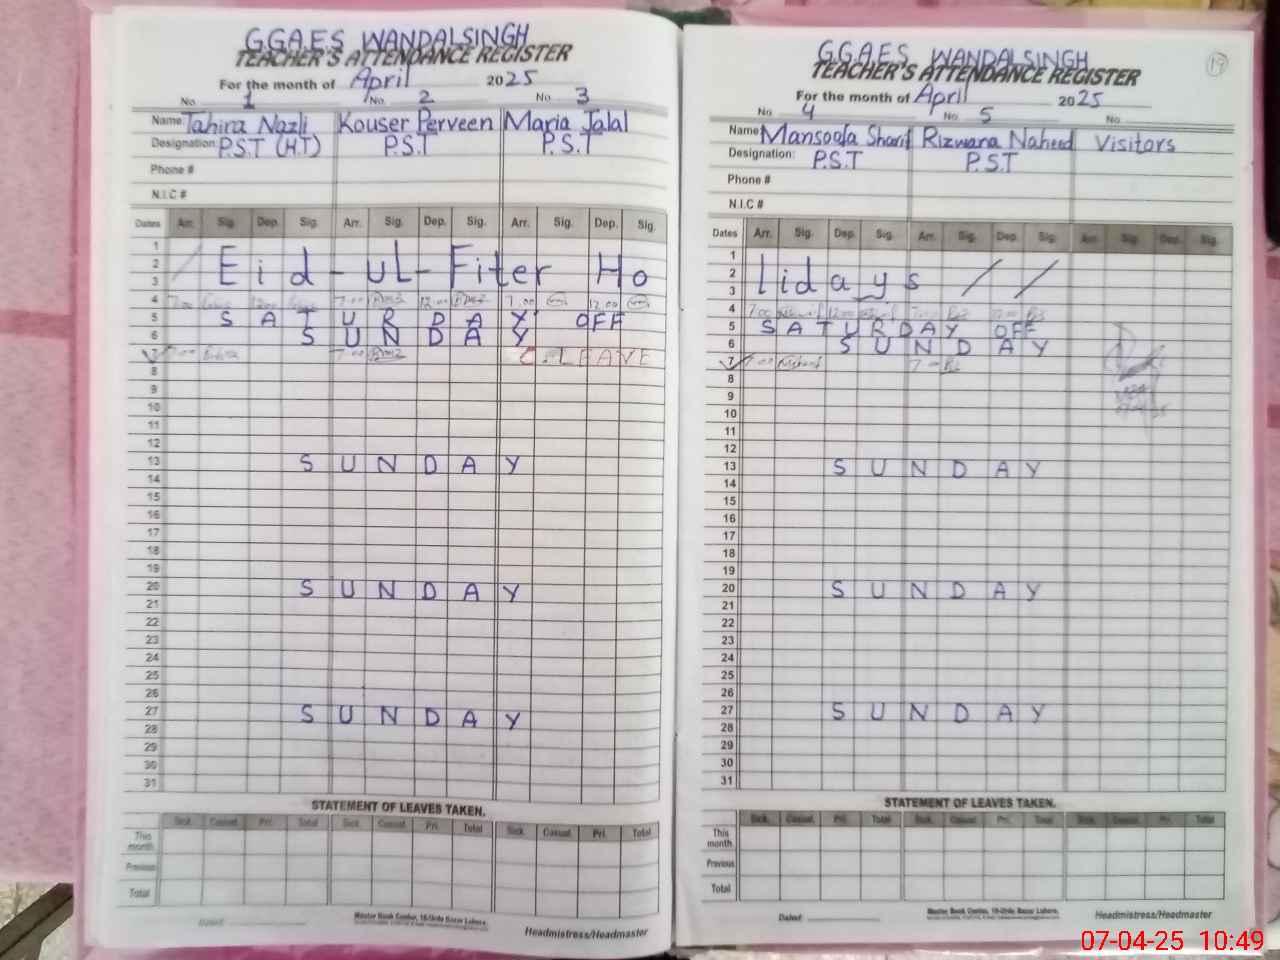 G.G.A.E.S WANDALSINGH
TEACHER'S ATTENDANCE REGISTER
For the month of April 2025
No. 1 No. 2 No. 3
Name Tahira Nazli Kouser Perveen Maria Jalal
Designation: P.S.T (H.T) P.S.T P.S.T
Phone #
N.I.C #
Dates Arr. Sig. Dep. Sig. Arr. Sig. Dep. Sig. Arr. Sig. Dep. Sig.
1
2 Eid-ul-Fiter Ho
3
4 7.00 12.00 7.00 12.00 7.00 12.00
5 SATURDAY OFF
6 SUNDAY
7 7.00 7.00 C. LEAVE
8
9
10
11
12
13 SUNDAY
14
15
16
17
18
19
20 SUNDAY
21
22
23
24
25
26
27 SUNDAY
28
29
30
31
STATEMENT OF LEAVES TAKEN.
Sick. Casual. Pri. Total Sick. Casual. Pri. Total Sick. Casual. Pri. Total
This month
Previous
Total
Dated
Master Book Center, 16-Urdu Bazar Lahore.
Headmistress/Headmaster
19
G.G.A.E.S WANDALSINGH
TEACHER'S ATTENDANCE REGISTER
For the month of April 2025
No. 4 No. 5 No.
Name Mansoofa Sharif Rizwana Naheed Visitors
Designation: P.S.T P.S.T
Phone #
N.I.C #
Dates Arr. Sig. Dep. Sig. Arr. Sig. Dep. Sig. Arr. Sig. Dep. Sig.
1
2 lidays / /
3
4 7.00 12.00 7.00 12.00
5 SATURDAY OFF
6 SUNDAY
7 7.00 7.00
8
9
10
11
12
13 SUNDAY
14
15
16
17
18
19
20 SUNDAY
21
22
23
24
25
26
27 SUNDAY
28
29
30
31
STATEMENT OF LEAVES TAKEN.
Sick. Casual. Pri. Total Sick. Casual. Pri. Total Sick. Casual. Pri. Total
This month
Previous
Total
Dated
Master Book Center, 16-Urdu Bazar Lahore.
Headmistress/Headmaster
07-04-25 10:49